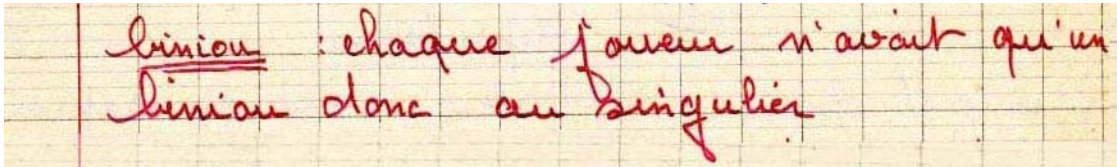 biniou : chaque joueur n'avait qu'un
biniou donc au singulier